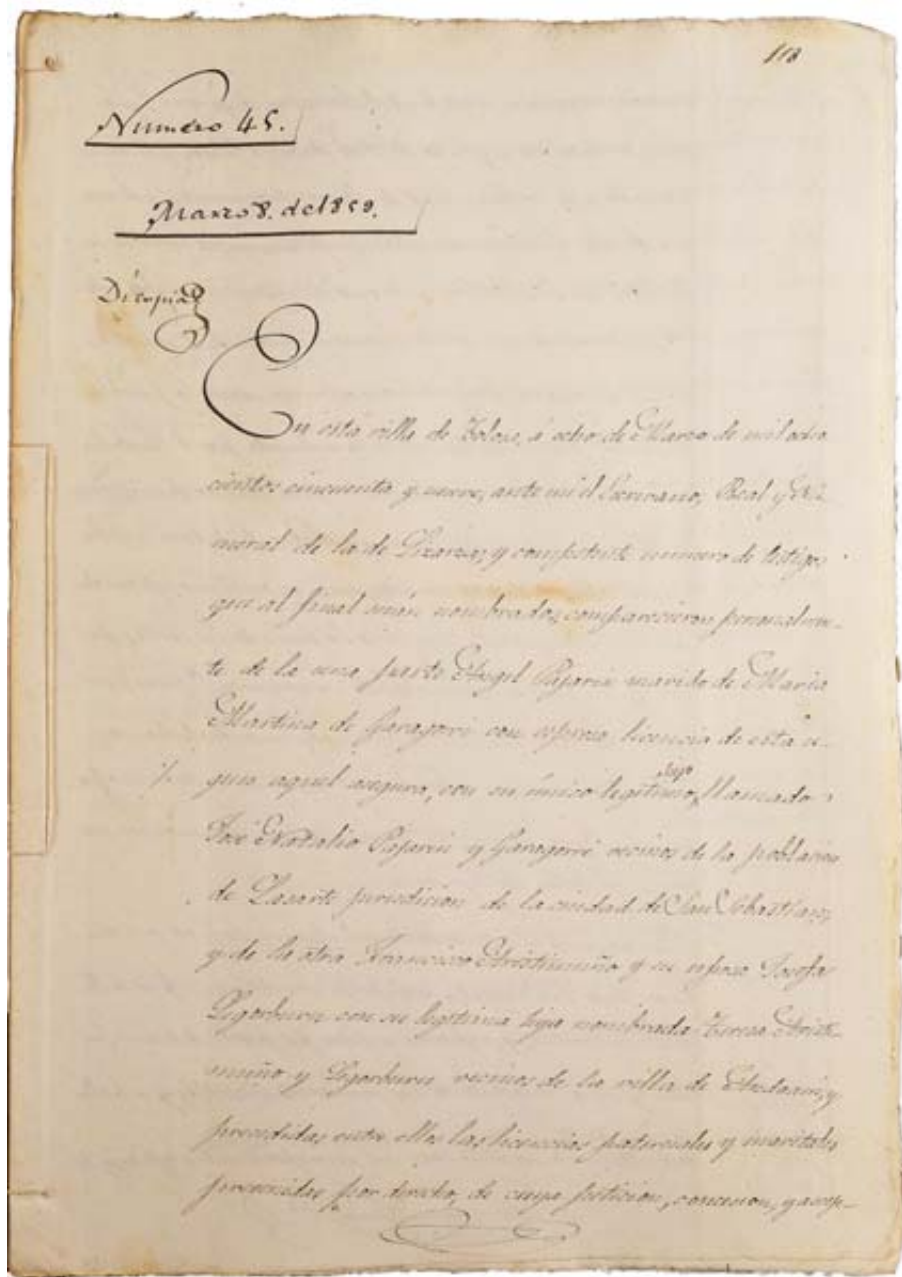 118
Numero 45.
Marzo 8. de 1859.
Di copia
En esta villa de Tolosa, á ocho de Marzo de mil ocho
cientos cincuenta y nueve, ante mi el Escrivano, Real y Nu
meral de la de Lizarza, y competente numero de testigos
que al final serán nombrados, comparecieron personalmen-
te de la una parte Angel Pajarin marido de Maria
Martina de Garagorri con espresa licencia de esta se-
gun aquel asegura, con su único legitimo hijo, llamado
José Natalio Pajarin y Garagorri vecinos de la poblacion
de Lasarte jurisdicion de la ciudad de San Sebastian,
y de la otra Francisco Aristimuño y su esposa Josefa
Legorburu con su legitima hija nombrada Teresa Aristi-
muño y Legorburu vecinos de la villa de Andoain, y
precedidas entre ellos las licencias paternales y maritales
prevenidas por derecho, de cuya peticion, concesion, y acep-